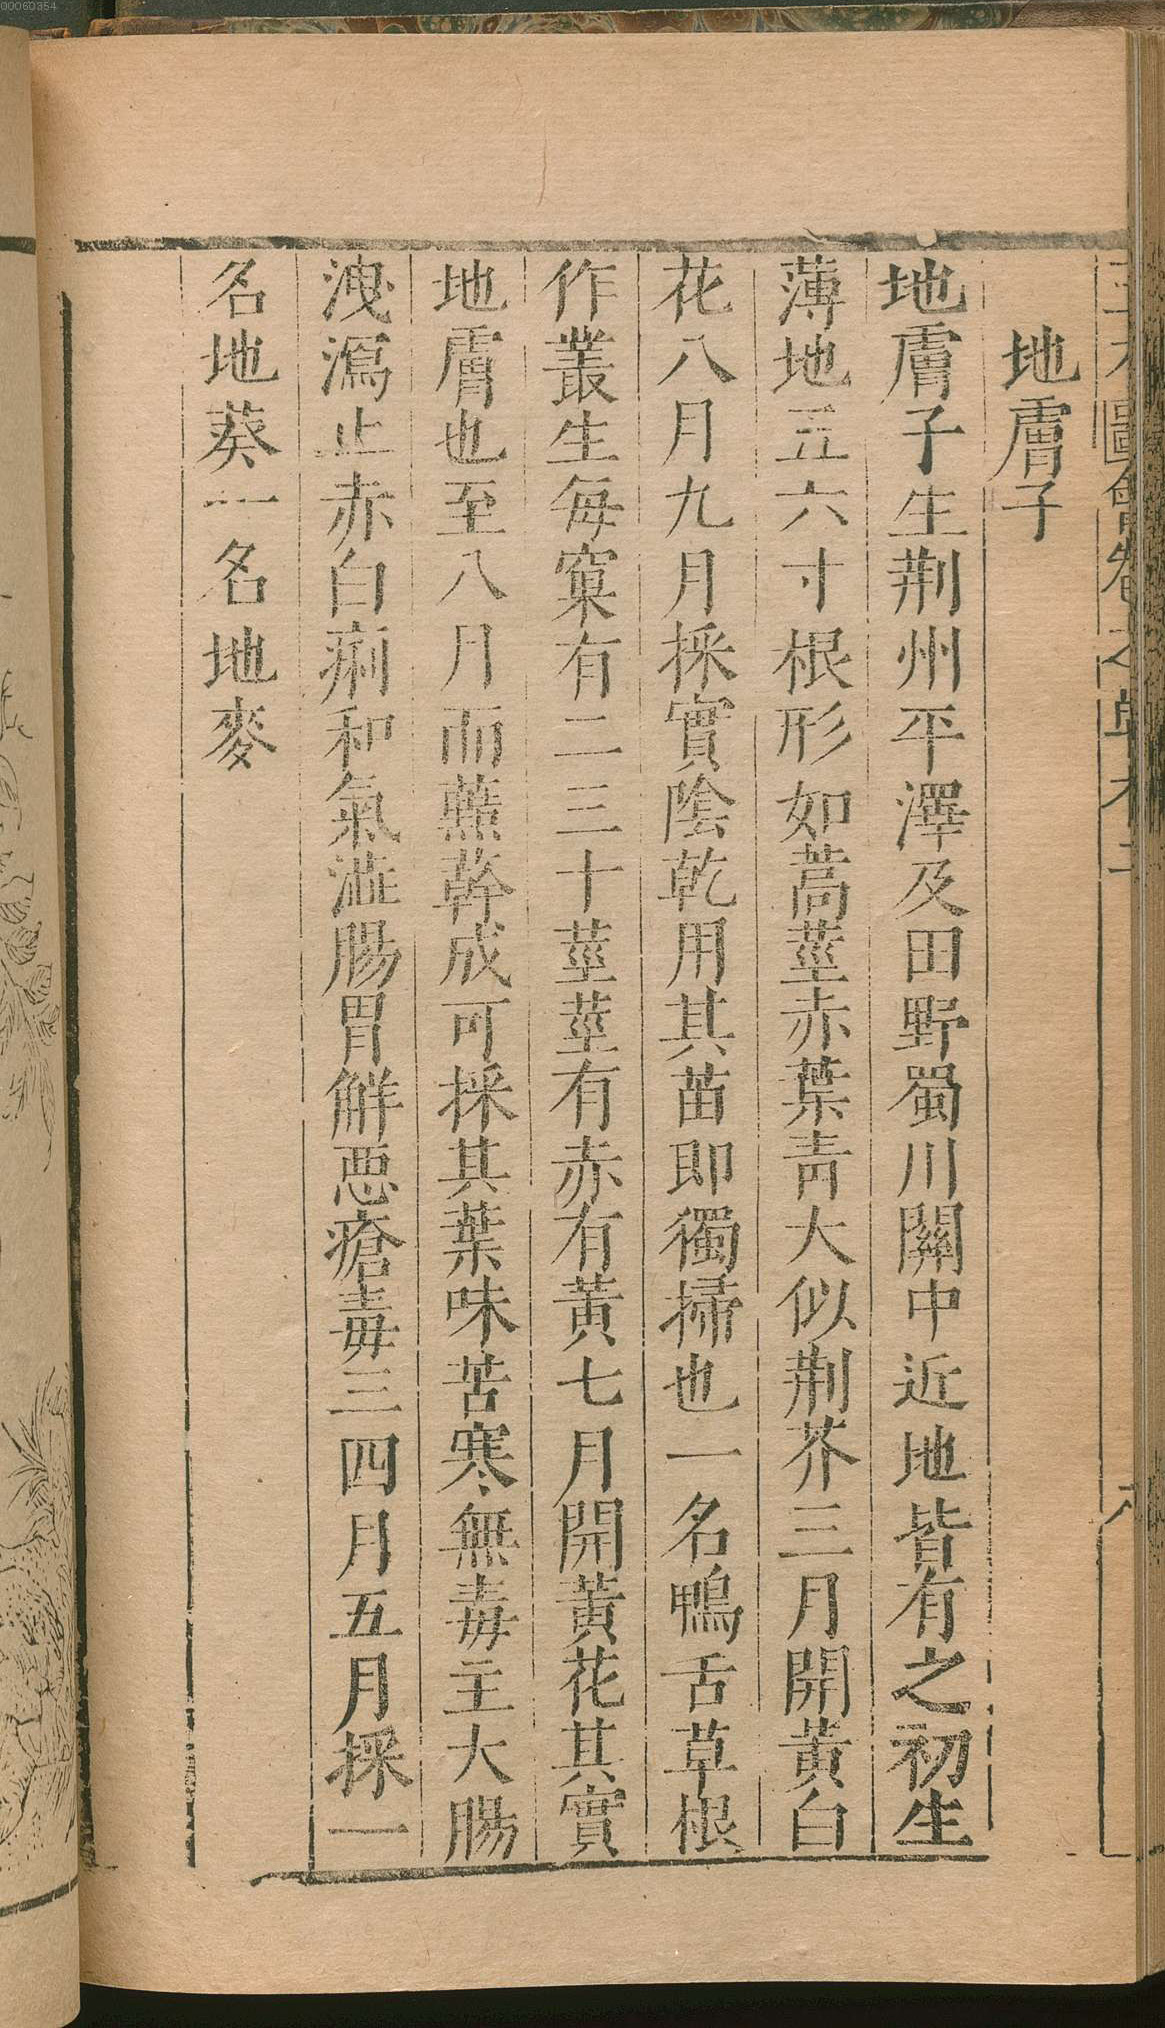 00060354
地膚子
地膚子生荆州平澤及田野蜀川關中近地皆有之初生
薄地五六寸根形如蒿莖赤葉青大似荆芥三月開黃白
花八月九月採實陰乾用其苗即獨掃也一名鴨舌草根
作叢生每窠有二三十莖莖有赤有黃七月開黃花其實
地膚也至八月而藮幹成可採其葉味苦寒無毒主大腸
洩瀉止赤白痢和氣澁腸胃觧惡瘡毒三四月五月採一
名地葵一名地麥